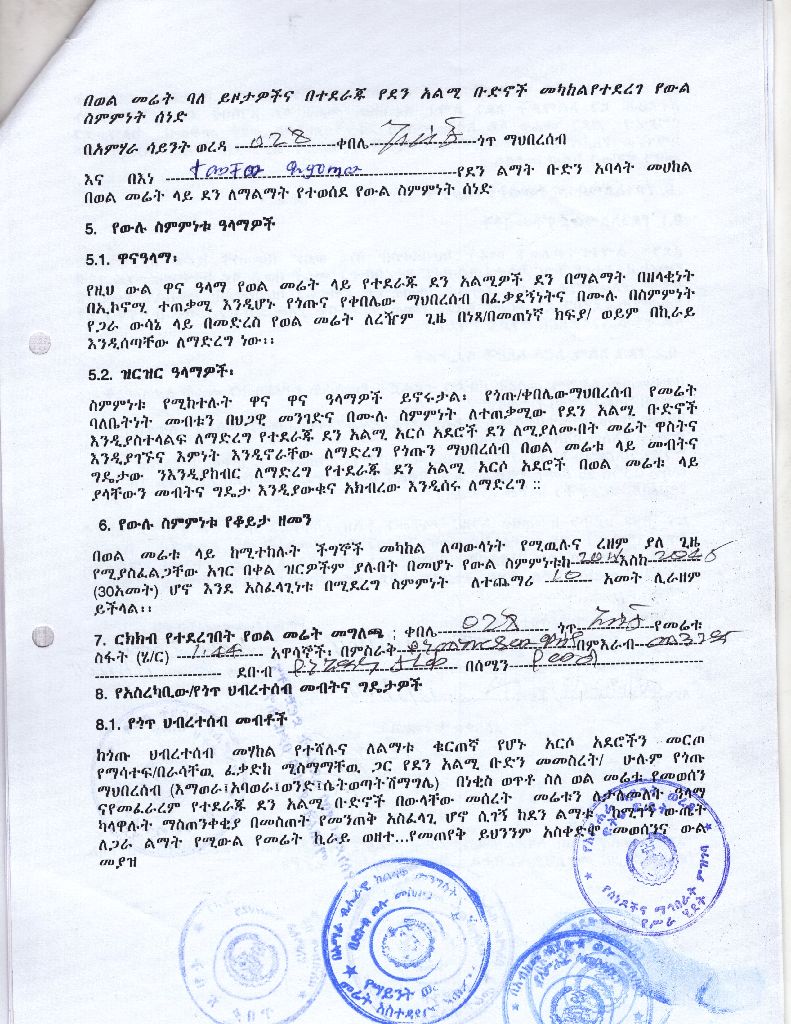 በወል መሬት ባለ ይዞታዎችና በተደራጁ የደን አልሚ ቡድኖች መካከልየተደረገ የውል
ስምምነት ሰነድ
በአምሃራ ሳይንት ወረዳ 028 ቀበሌ ጎጥ ማህበረሰብ
እና በእነ የደን ልማት ቡድን አባላት መሀከል
በወል መሬት ላይ ደን ለማልማት የተወሰደ የውል ስምምነት ሰነድ
5. የውሉ ስምምነቱ ዓላማዎች
5.1. ዋናዓላማ፡
የዚህ ውል ዋና ዓላማ የወል መሬት ላይ የተደራጁ ደን አልሚዎች ደን በማልማት በዘላቂነት
በኢኮኖሚ ተጠቃሚ እንዲሆኑ የጎጡና የቀበሌው ማህበረሰብ በፈቃደኝነትና በሙሉ በስምምነት
የጋራ ውሳኔ ላይ በመድረስ የወል መሬት ለረዥም ጊዜ በነጻ/በመጠነኛ ክፍያ/ ወይም በኪራይ
እንዲሰጣቸው ለማድረግ ነው፡፡
5.2. ዝርዝር ዓላማዎች፡
ስምምነቱ የሚከተሉት ዋና ዋና ዓላማዎች ይኖሩታል፡ የጎጡ/ቀበሌውማህበረሰብ የመሬት
ባለቤትነት መብቱን በህጋዊ መንገድና በሙሉ ስምምነት ለተጠቃሚው የደን አልሚ ቡድኖች
እንዲያስተላልፍ ለማድረግ የተደራጁ ደን አልሚ አርሶ አደሮች ደን ለሚያለሙበት መሬት ዋስትና
እንዲያገኙና እምነት እንዲኖራቸው ለማድረግ የጎጡን ማህበረሰብ በወል መሬቱ ላይ መብትና
ግዴታው ንእንዲያከብር ለማድረግ የተደራጁ ደን አልሚ አርሶ አደሮች በወል መሬቱ ላይ
ያላቸውን መብትና ግዴታ እንዲያውቁና አክብረው እንዲሰሩ ለማድረግ ::
6. የውሉ ስምምነቱ የቆይታ ዘመን
በወል መሬቱ ላይ ከሚተከሉት ችግኞች መካከል ለጣውላነት የሚዉሉና ረዘም ያለ ጊዜ
የሚያስፈልጋቸው አገር በቀል ዝርዎችም ያሉበት በመሆኑ የውል ስምምነቱከ እስከ
(30አመት) ሆኖ እንደ አስፈላጊነቱ በሚደረግ ስምምነት ለተጨማሪ 10 አመት ሊራዘም
ይችላል፡፡
7. ርክክብ የተደረገበት የወል መሬት መግለጫ ; ቀበሌ 028 ጎጥ የመሬቱ
ስፋት (ሄ/ር) 1.44 አዋሳኞች፡ በምስራቅ በምእራብ
ደቡብ በሰሜን
8. የአስረካቢው/የጎጥ ህብረተሰብ መብትና ግዴታዎች
8.1. የጎጥ ህብረተሰብ መብቶች
ከጎጡ ህብረተሰብ መሃከል የተሻሉና ለልማቱ ቁርጠኛ የሆኑ አርሶ አደሮችን መርጦ
የማሳተፍ/በራሳቸዉ ፈቃድከ ሚስማማቸዉ ጋር የደን አልሚ ቡድን መመስረት/ ሁሉም የጎጡ
ማህበረሰብ (እማወራ፤አባወራ፤ወንድ፤ሴትወጣትሽማግሌ) በነቂስ ወጥቶ ስለ ወል መሬቱ የመወሰን
ናየመፈራረም የተደራጁ ደን አልሚ ቡድኖች በውላቸው መሰረት መሬቱን ለታለመለት ዓላማ
ካላዋሉት ማስጠንቀቂያ በመስጠት የመንጠቅ አስፈላጊ ሆኖ ሲገኝ ከደን ልማቱ ከሚገኝ ውጤት
ለጋራ ልማት የሚውል የመሬት ኪራይ ወዘተ...የመጠየቅ ይህንንም አስቀድሞ መወሰንና ውል
መያዝ